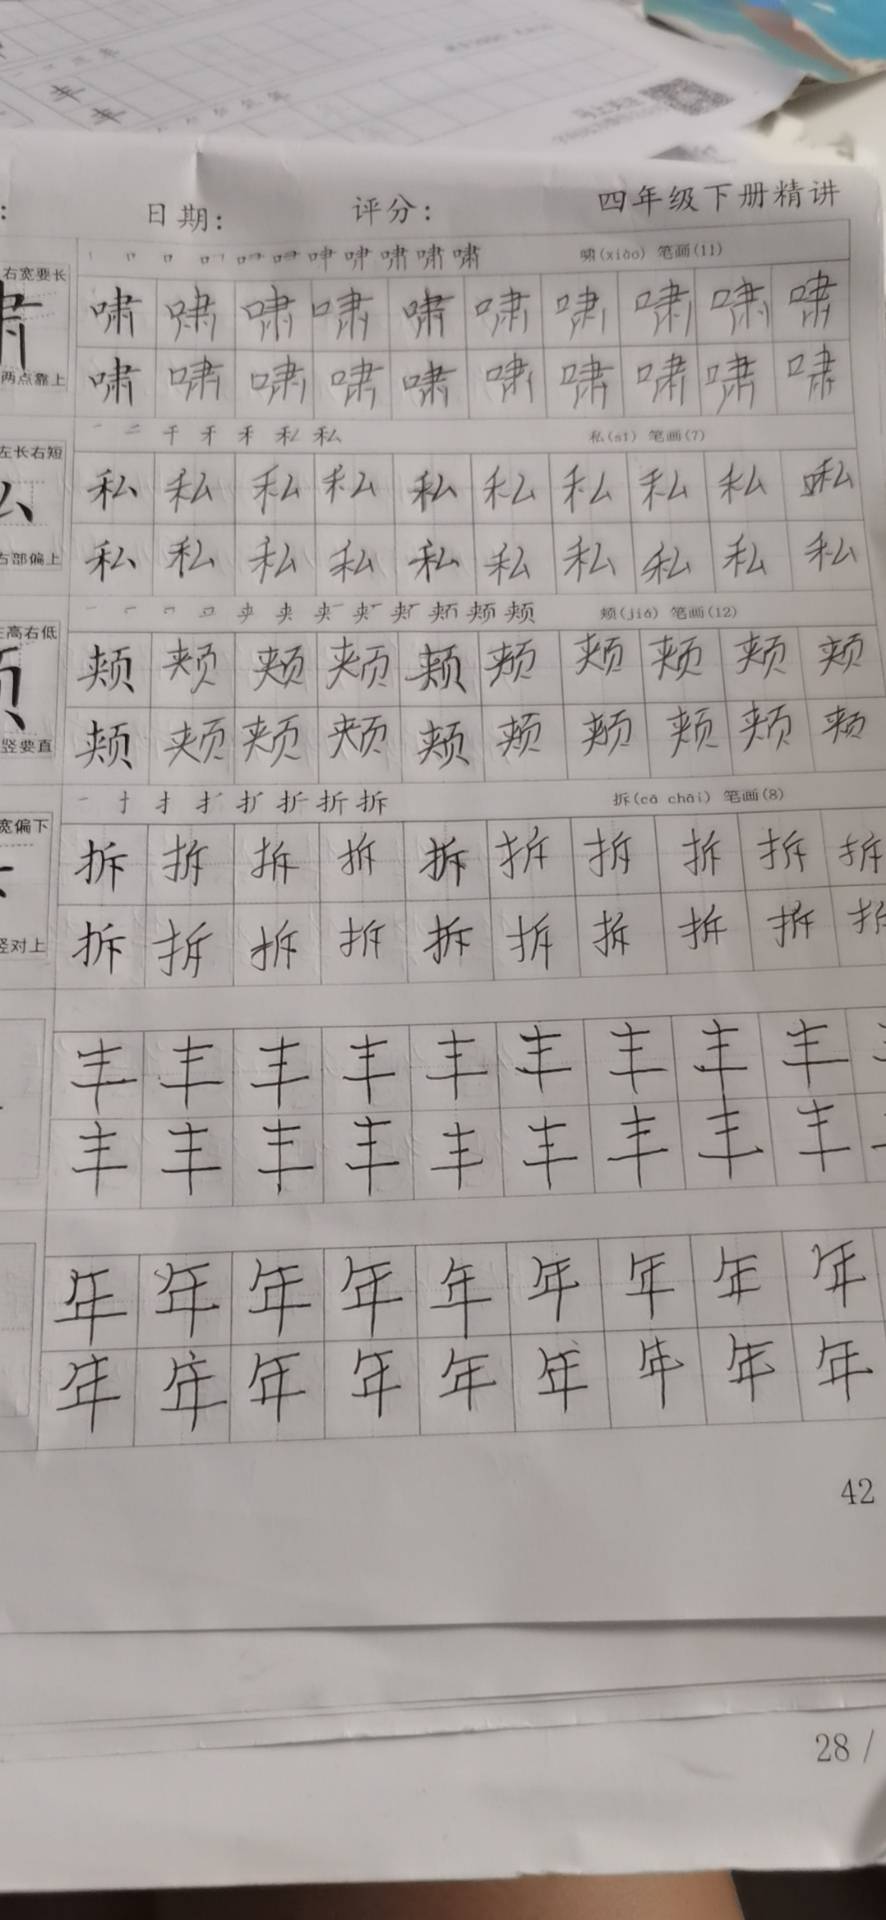 丰
丰
四年级下册精讲
日期: 评分:
右宽要长
啸(xiào) 笔画(11)
啸 啸 啸 啸 啸 啸 啸 啸 啸 啸
两点靠上
啸 啸 啸 啸 啸 啸 啸 啸 啸 啸
左长右短
私(sī) 笔画(7)
私 私 私 私 私 私 私 私 私 私
右部偏上
私 私 私 私 私 私 私 私 私 私
左高右低
颊(jiá) 笔画(12)
颊 颊 颊 颊 颊 颊 颊 颊 颊 颊
竖要直
颊 颊 颊 颊 颊 颊 颊 颊 颊 颊
宽偏下
拆(cā chāi) 笔画(8)
拆 拆 拆 拆 拆 拆 拆 拆 拆 拆
竖对上
拆 拆 拆 拆 拆 拆 拆 拆 拆 拆
丰 丰 丰 丰 丰 丰 丰 丰 丰
丰 丰 丰 丰 丰 丰 丰 丰 丰
年 年 年 年 年 年 年 年 年
年 年 年 年 年 年 年 年 年
42
28 /